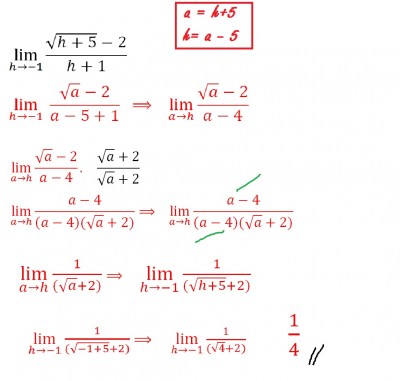 a = h+5
h= a - 5
lim h→−1 √(h + 5) − 2 / h + 1
lim h→−1 √a − 2 / a − 5 + 1 ⟹ lim a→h √a − 2 / a − 4
lim a→h √a − 2 / a − 4 . √a + 2 / √a + 2
lim a→h a − 4 / (a − 4)(√a + 2) ⟹ lim a→h a − 4 / (a − 4)(√a + 2)
lim a→h 1 / (√a+2) ⟹ lim h→−1 1 / (√(h+5)+2)
lim h→−1 1 / (√(−1+5)+2) ⟹ lim h→−1 1 / (√4+2) 1 / 4 //